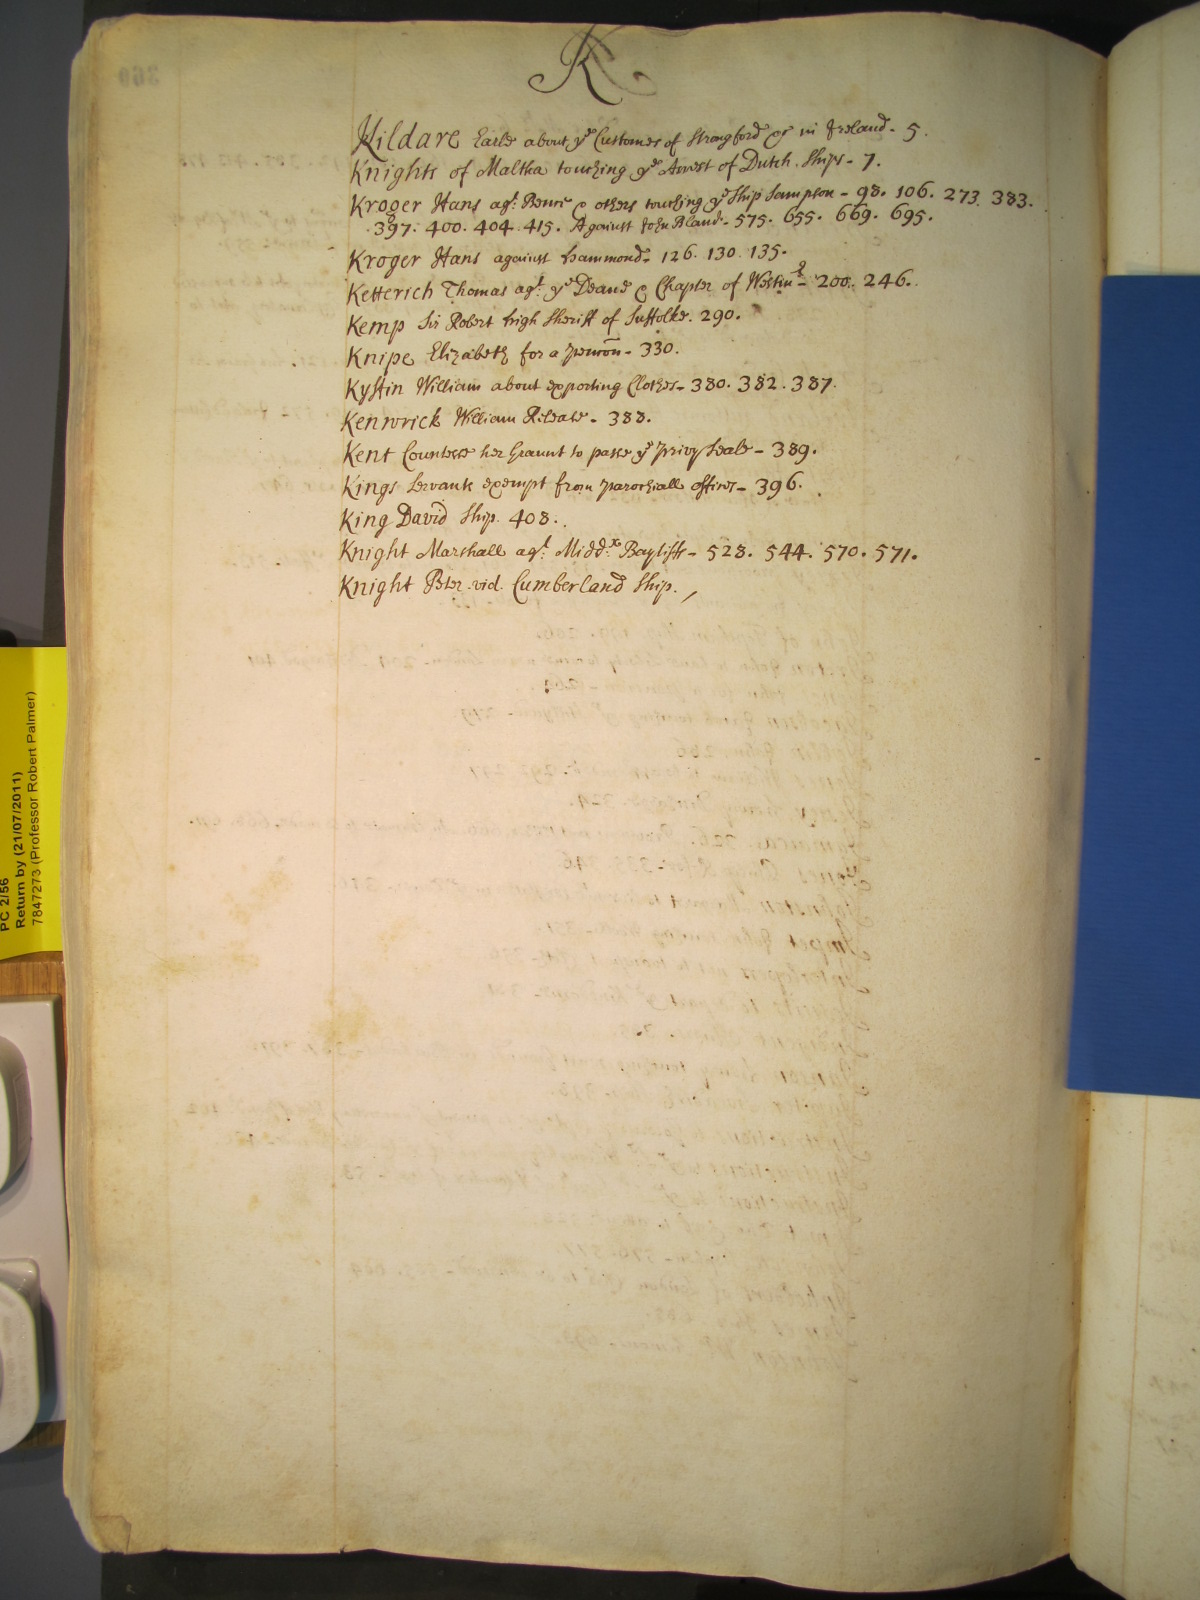 K
Kildare Earle about ye Customes of Strangford &c in Ireland - 5.
Knights of Maltha touching ye Arrest of Dutch Ships - 7.
Kroger Hans agt. & others touching ye Ship Sampson - 98. 106. 273. 383.
397. 400. 404. 415. Against John Bland - 575. 655. 669. 695.
Kroger Hans against Hammond - 126. 130. 135.
Ketterich Thomas agt. ye Deane & Chapter of Westmr - 200. 246.
Kemp Sir Robert high Sheriff of Suffolke. 290.
Knipe Elizabeth for a - 330.
Kyffin William about exporting Clothes - 380. 382. 387.
Kenwrick William Release - 388.
Kent Countesse her Graunt to passe ye privy Seale - 389.
Kings Servants exempt from parochiall offices - 396.
King David Ship. 408.
Knight Marshall agt. Middx. Bayliffs - 528. 544. 570. 571.
Knight Peter vid. Cumberland Ship.
PC 2/56
Return by (21/07/2011)
7847273 (Professor Robert Palmer)